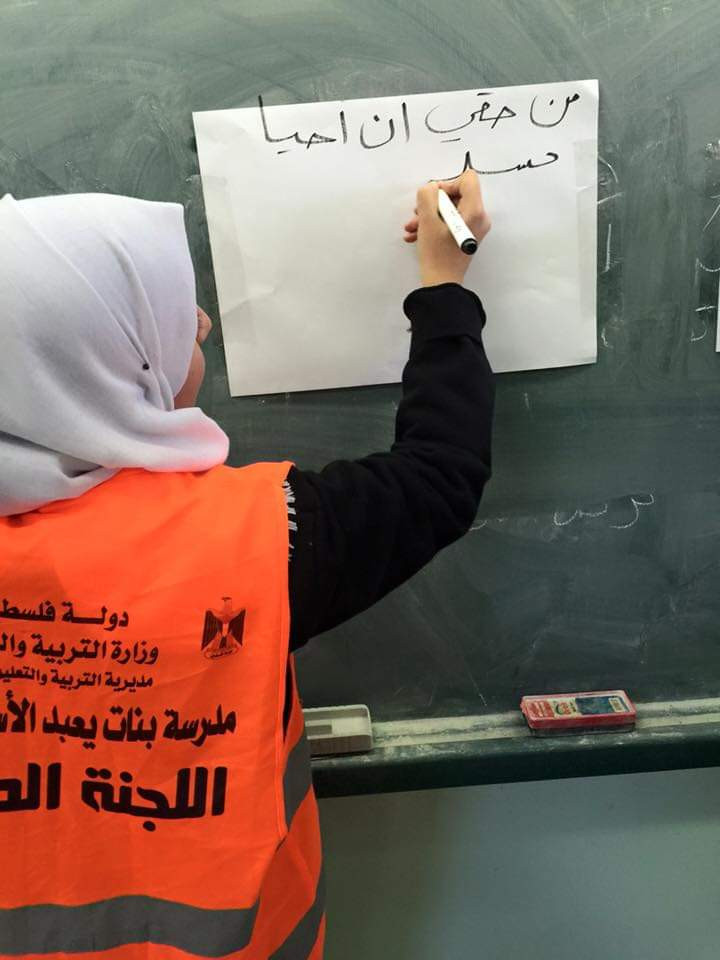 من حقي ان احيا
دولة فلسط
وزارة التربية وال
مديرية التربية والتعليم
مدرسة بنات يعبد الأس
اللجنة الص